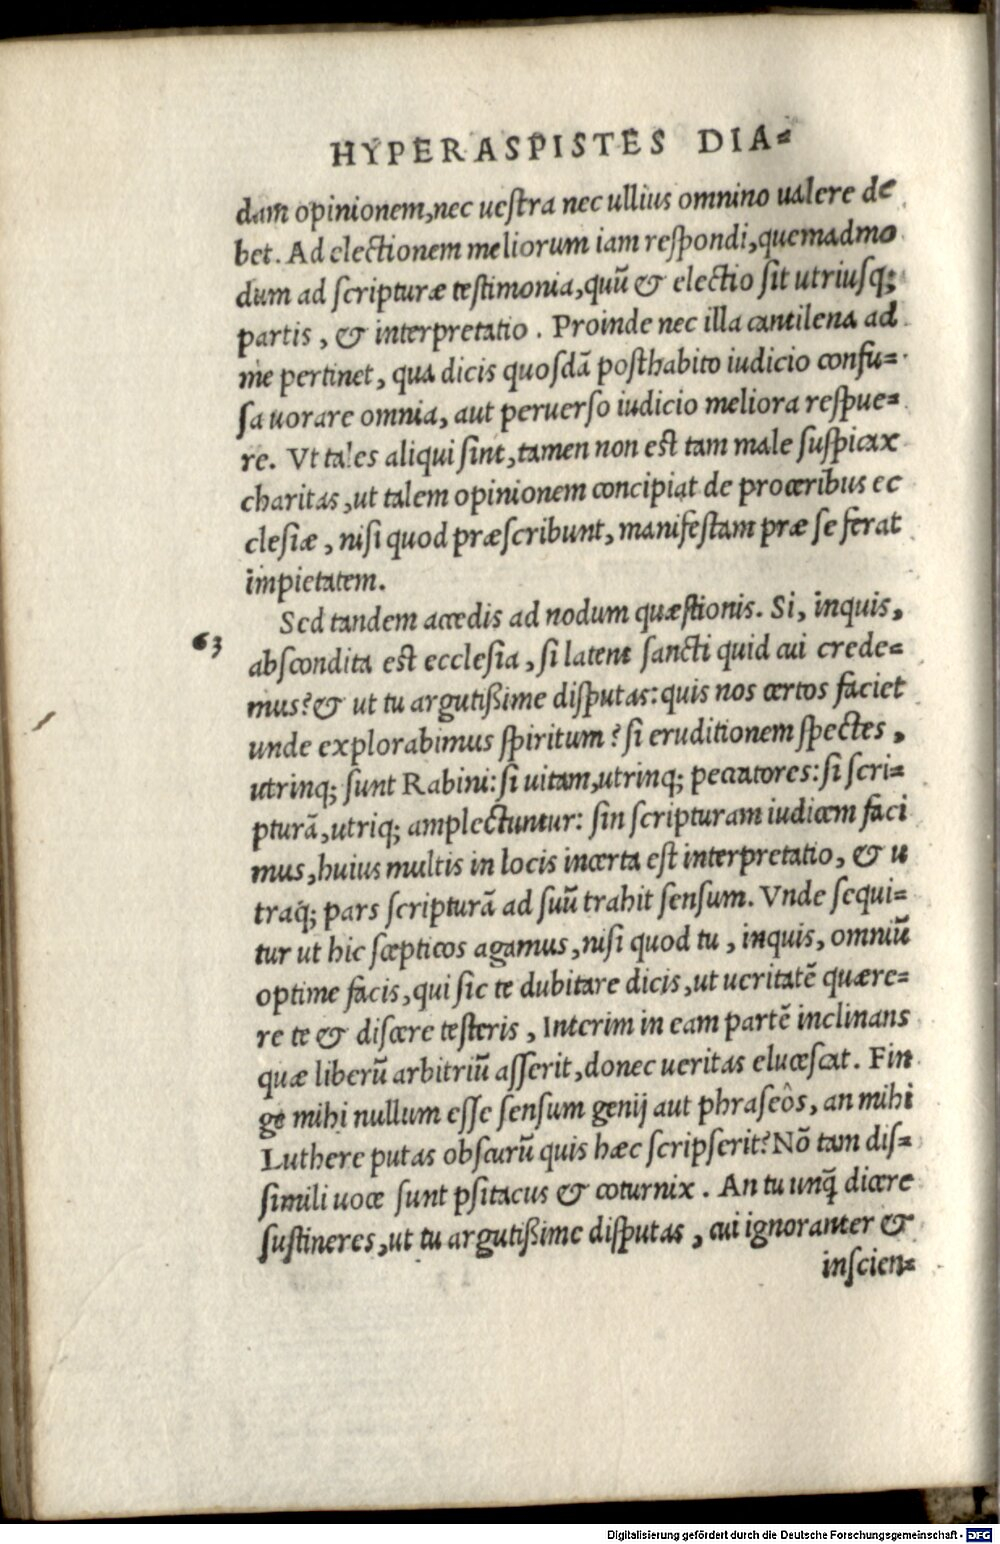 HYPERASPISTES DIA=
dam opinionem, nec uestra nec ullius omnino ualere de
bet. Ad electionem meliorum iam respondi, quemadmo
dum ad scripturæ testimonia, quũ & electio sit utriusq;
partis, & interpretatio. Proinde nec illa cantilena ad
me pertinet, qua dicis quosdã posthabito iudicio confu=
sa uorare omnia, aut peruerso iudicio meliora respue=
re. Vt tales aliqui sint, tamen non est tam male suspicax
charitas, ut talem opinionem concipiat de proceribus ec
clesiæ, nisi quod præscribunt, manifestam præ se ferat
impietatem.
Sed tandem accedis ad nodum quæstionis. Si, inquis,
63
abscondita est ecclesia, si latent sancti quid cui crede=
mus? & ut tu argutißime disputas: quis nos certos faciet
unde explorabimus spiritum? si eruditionem spectes,
utrinq; sunt Rabini: si uitam, utrinq; peccatores: si scri=
pturã, utriq; amplectuntur: sin scripturam iudicem faci
mus, huius multis in locis incerta est interpretatio, & u
traq; pars scripturã ad suũ trahit sensum. Vnde sequi=
tur ut hic scepticos agamus, nisi quod tu, inquis, omniũ
optime facis, qui sic te dubitare dicis, ut ueritatẽ quære=
re te & discere testeris, Interim in eam partẽ inclinans
quæ liberũ arbitriũ asserit, donec ueritas elucescat. Fin
ge mihi nullum esse sensum genij aut phraseôs, an mihi
Luthere putas obscurũ quis hæc scripserit? Nõ tam dis=
simili uoce sunt psitacus & coturnix. An tu unq̃ dicere
sustineres, ut tu argutißime disputas, cui ignoranter &
inscien=
Digitalisierung gefördert durch die Deutsche Forschungsgemeinschaft - DFG